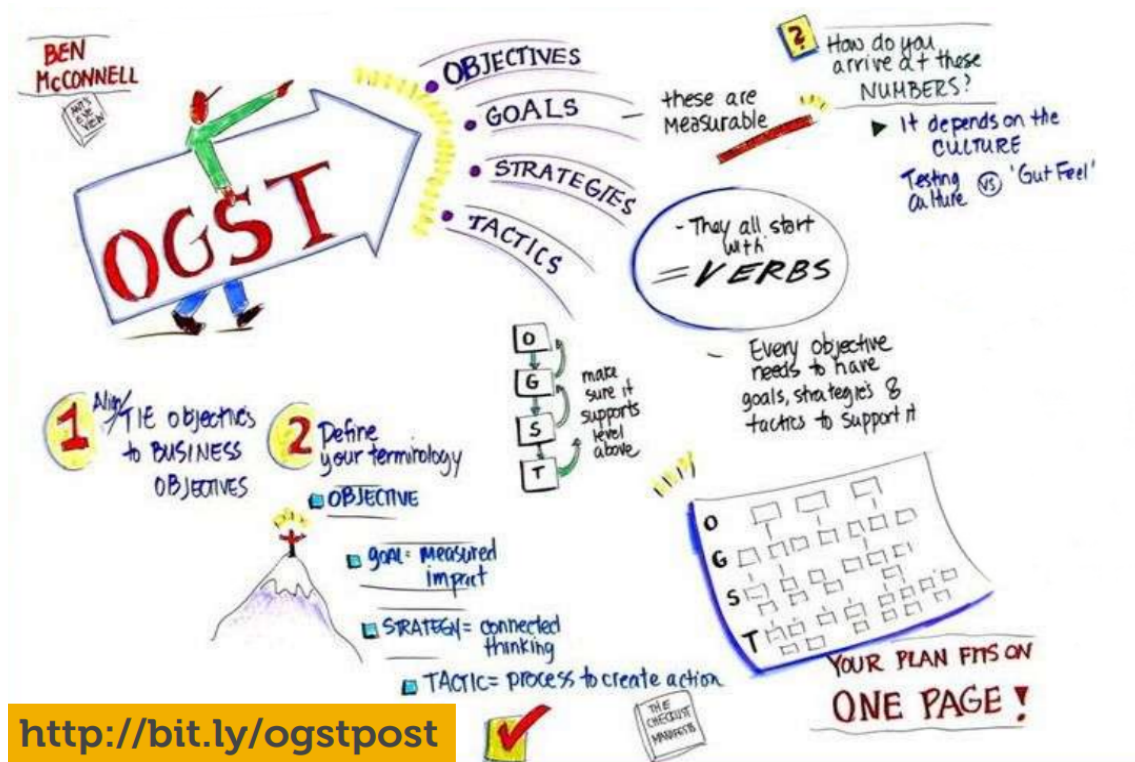 BEN
McCONNELL
ANT'S
EYE
VIEW
OGST
OBJECTIVES
GOALS
STRATEGIES
TACTICS
– these are
Measurable
?
How do you
arrive at these
NUMBERS?
It depends on the
CULTURE
Testing vs 'Gut Feel'
Culture
- They all start
with
= VERBS
– Every objective
needs to have
goals, strategies &
tactics to support it
O
G
S
T
make
sure it
supports
level
above
1 Align/TIE objectives
to BUSINESS
OBJECTIVES
2 Define
your terminology
OBJECTIVE
goal = measured
impact
STRATEGY = connected
thinking
TACTIC = process to create action
O
G
S
T
YOUR PLAN FITS ON
ONE PAGE!
THE
CHECKLIST
MANIFESTO
http://bit.ly/ogstpost